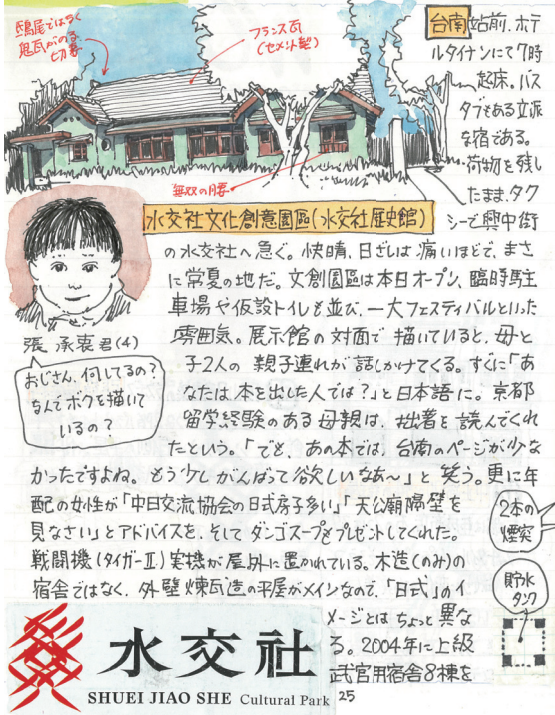 鴟尾ではなく
鬼瓦がのる、
切妻
フランス瓦
(セメント製)
無双の
台南站前、ホテ
ルタイナンにて7時
起床。バス
タブもある立派
な宿である。
荷物を残し
たまま、タク
シーで興中街
水交社文化創意園區(水交社歴史館)
の水交社へ急ぐ。快晴、日ざしは痛いほどで、まさ
に常夏の地だ。文創園區は本日オープン、臨時駐
車場や仮設トイレも並び、一大フェスティバルといった
雰囲気。展示館の対面で描いていると、母と
子2人の親子連れが話しかけてくる。すぐに「あ
なたは本を出した人では?」と日本語に。京都
留学経験のある母親は、拙著を読んでくれ
たという。「でも、あの本では、台南のページが少な
かったですよね。もう少しがんばって欲しいなあ〜」と笑う。更に年
配の女性が「中日交流協会の日式房子多い」「天公廟隔壁を
見なさい」とアドバイスを、そしてダンゴスープもプレゼントしてくれた。
戦闘機(タイガーⅡ)実機が屋外に置かれている。木造(のみ)の
宿舎ではなく、外壁煉瓦造の平屋がメインなので、「日式」のイ
メージとはちょっと異な
る。2004年に上級
武官用宿舎8棟を
張 承 君(4)
おじさん、何してるの?
なんでボクを描いて
いるの?
2本の
煙突
貯水
タンク
水交社
SHUEI JIAO SHE Cultural Park
25